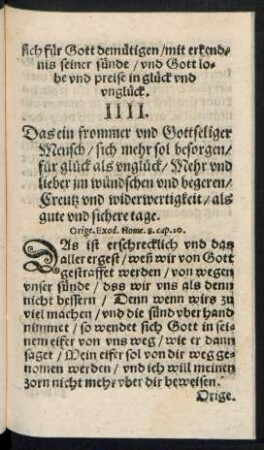 sich für Gott demütigen/mit erkend-
nis seiner sünde/vnd Gott lo-
be vnd preise in glück vnd
vnglück.
IIII.
Das ein frommer vnd Gottseliger
Mensch/sich mehr sol besorgen/
für glück als vnglück/Mehr vnd
lieber jm wündschen vnd begeren/
Creutz vnd widerwertigkeit/als
gute vnd sichere tage.
Orige. Exod. Home. 8. cap. 20.
DAs ist erschrecklich vnd das
aller ergest/weñ wir von Gott
gestraffet werden/von wegen
vnser sünde/dss wir vns als denn
nicht bessern/Denn wenn wirs zu
viel machen/vnd die sünd vber hand
nimmet/so wendet sich Gott in sei-
nem eifer von vns weg/wie er dann
saget/Mein eifer sol von dir weg ge-
nomen werden/vnd ich will meinen
zorn nicht mehr vber dir beweisen.
Orige.